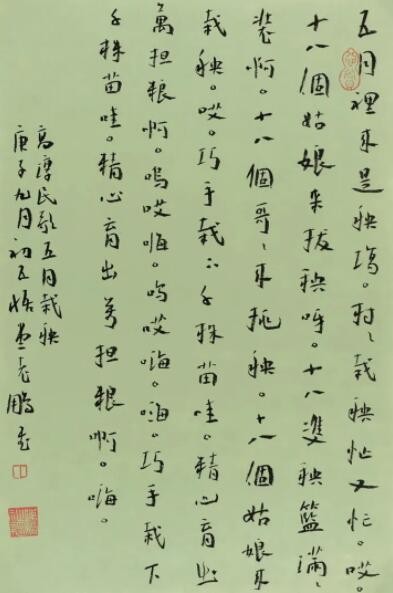 五月裡來是秧場。村村栽秧忙又忙。哎。
十八個姑娘來拔秧呀。十八雙秧籃滿滿
裝啊。十八個哥哥來挑秧。十八個姑娘來
栽秧。哎。巧手栽下千株苗哇。精心育出
萬担粮啊。嗚哎嗨。嗚哎嗨。嗨。巧手栽下
千株苗哇。精心育出萬担粮啊。嗨。
高淳民歌五月栽秧
庚子九月初五悟堂老鵬